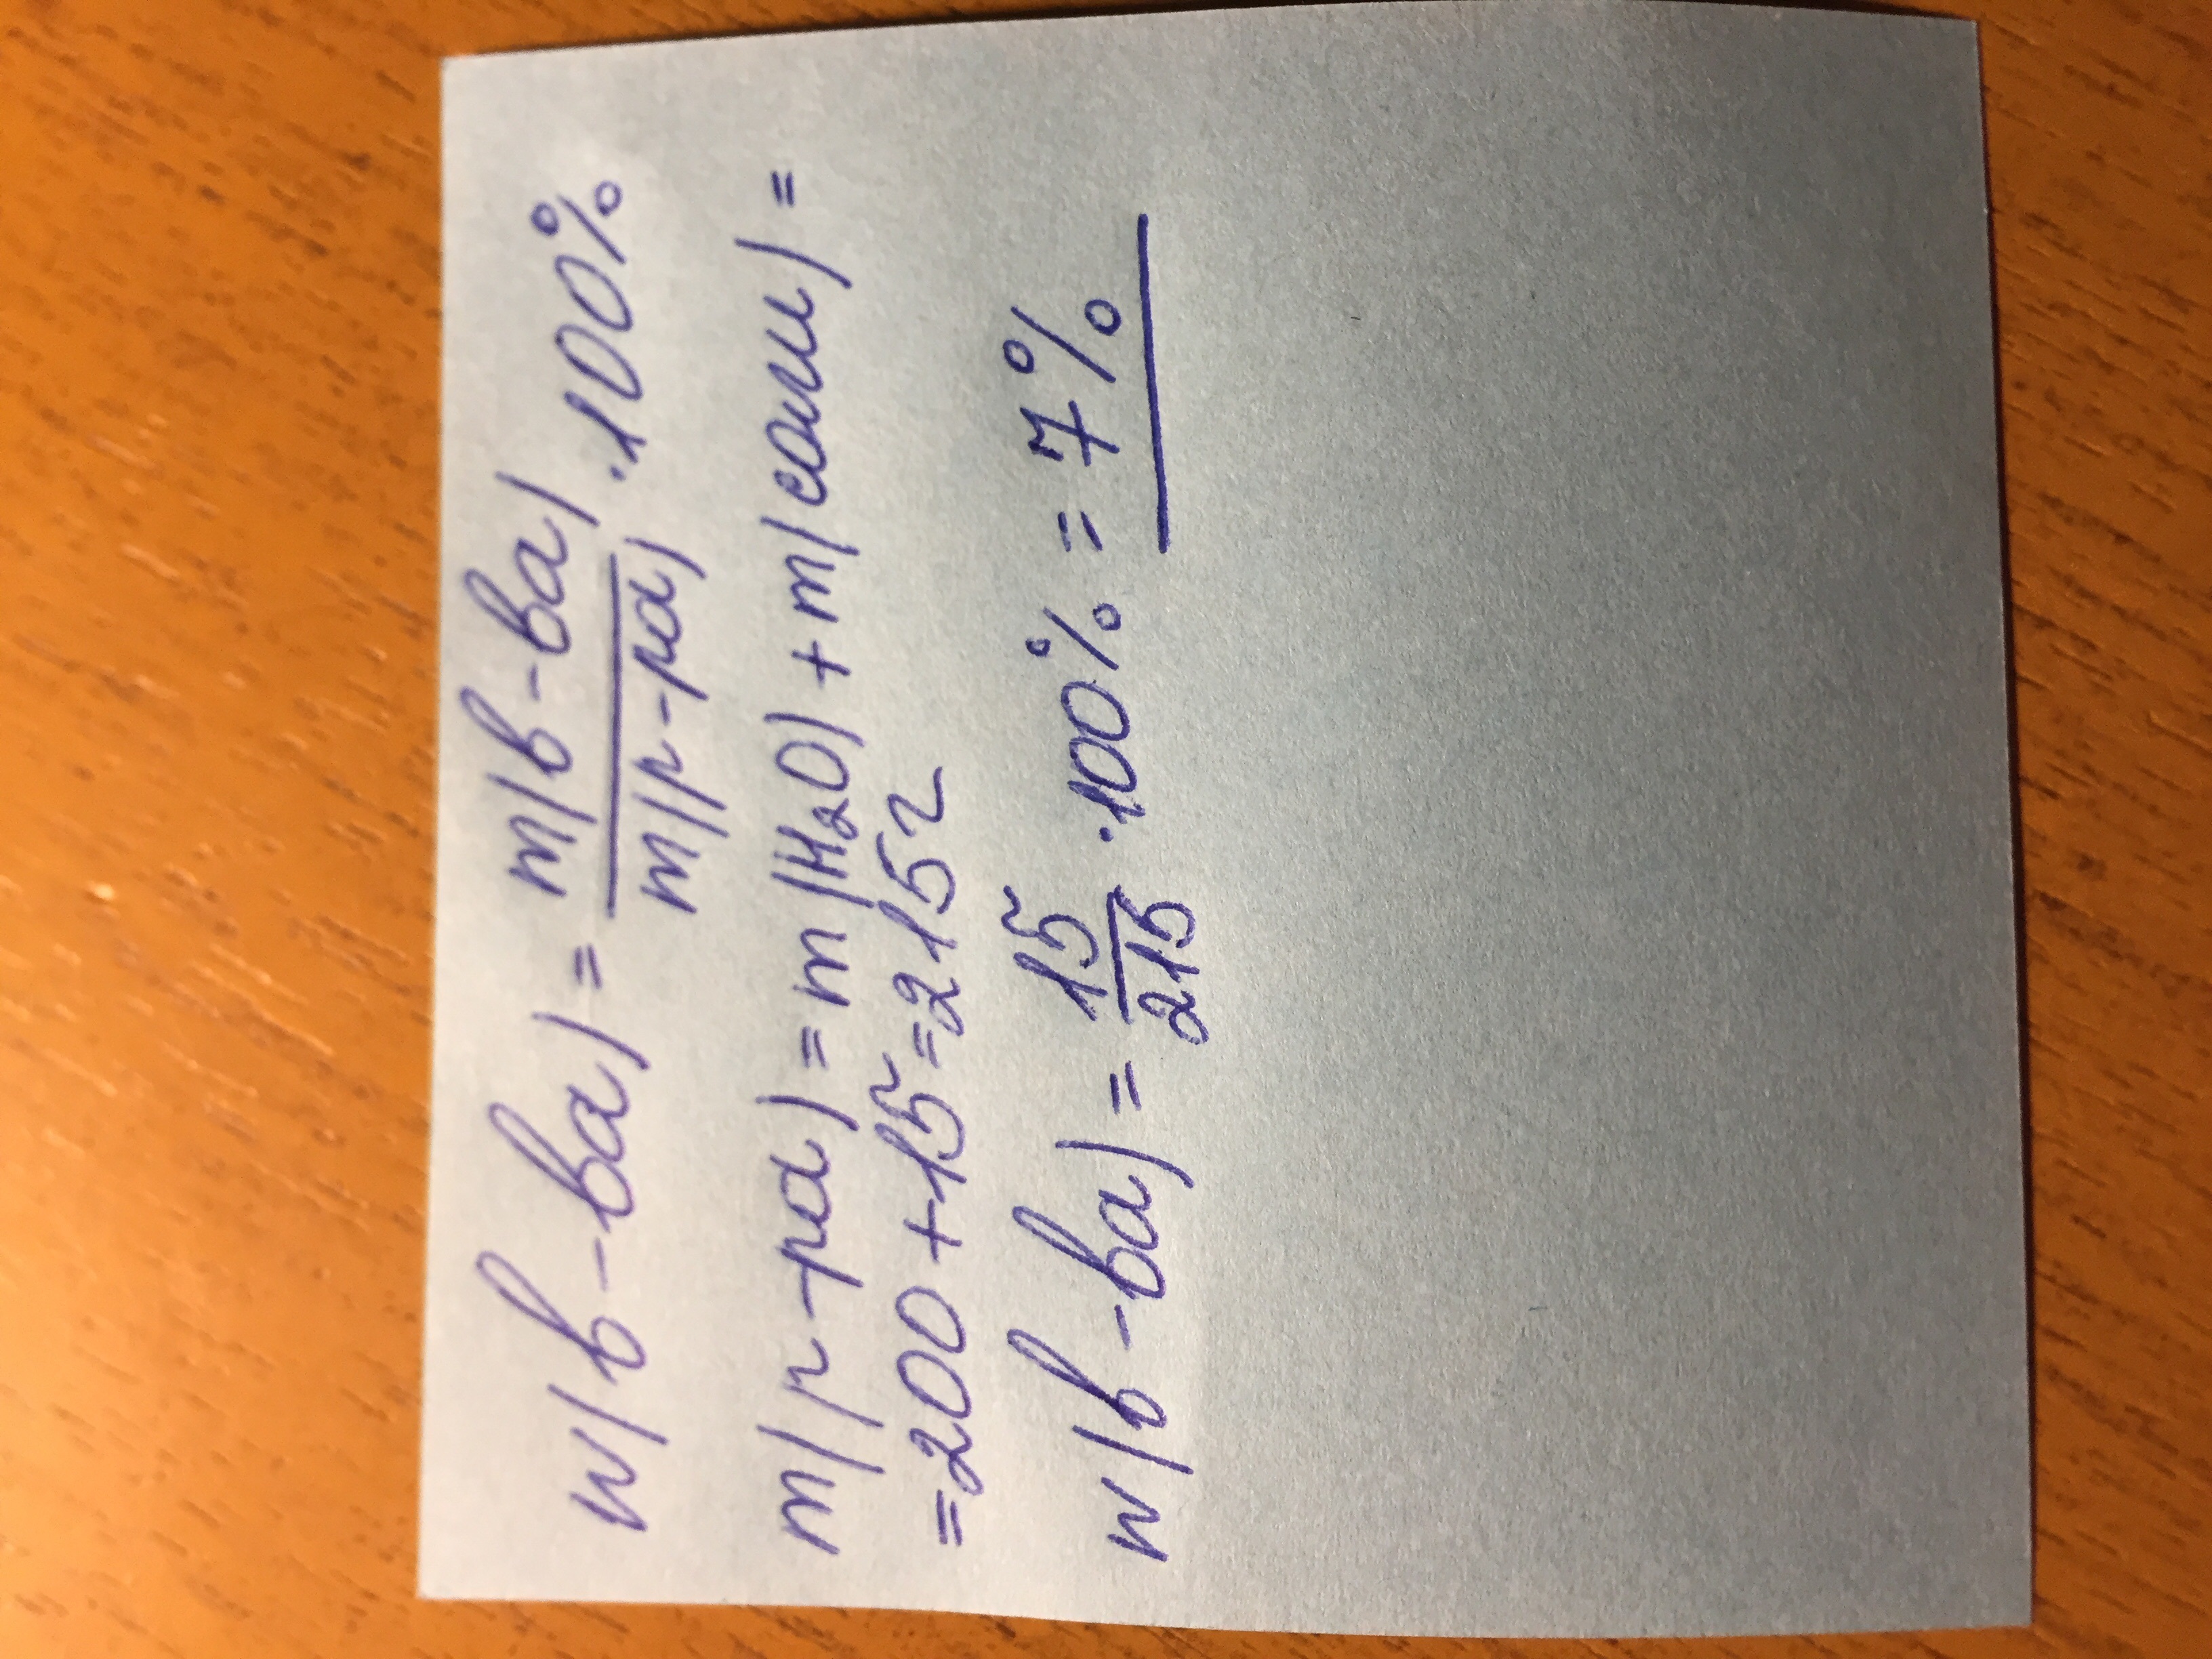 w(в-ва) = m(в-ва)/m(р-ра) · 100%
m(р-ра) = m(H₂O) + m(соли) =
= 200 + 15 = 215 г
w(в-ва) = 15/215 · 100% = 7%